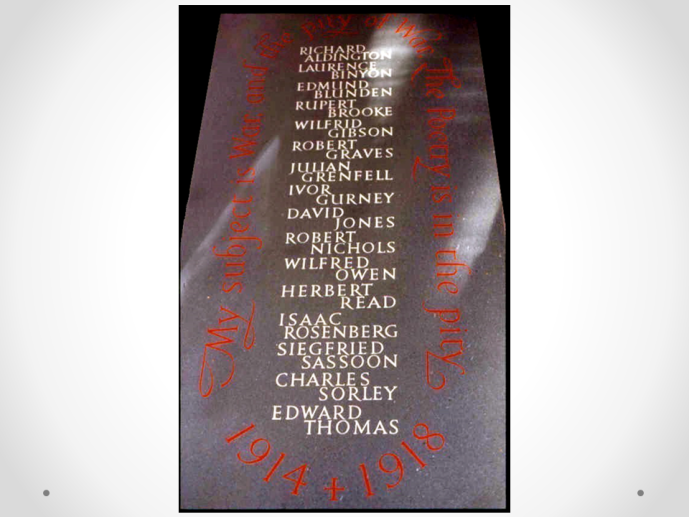 My subject is War, and the Pity of War. The Poetry is in the pity.
RICHARD
ALDINGTON
LAURENCE
BINYON
EDMUND
BLUNDEN
RUPERT
BROOKE
WILFRID
GIBSON
ROBERT
GRAVES
JULIAN
GRENFELL
IVOR
GURNEY
DAVID
JONES
ROBERT
NICHOLS
WILFRED
OWEN
HERBERT
READ
ISAAC
ROSENBERG
SIEGFRIED
SASSOON
CHARLES
SORLEY
EDWARD
THOMAS
1914 + 1918